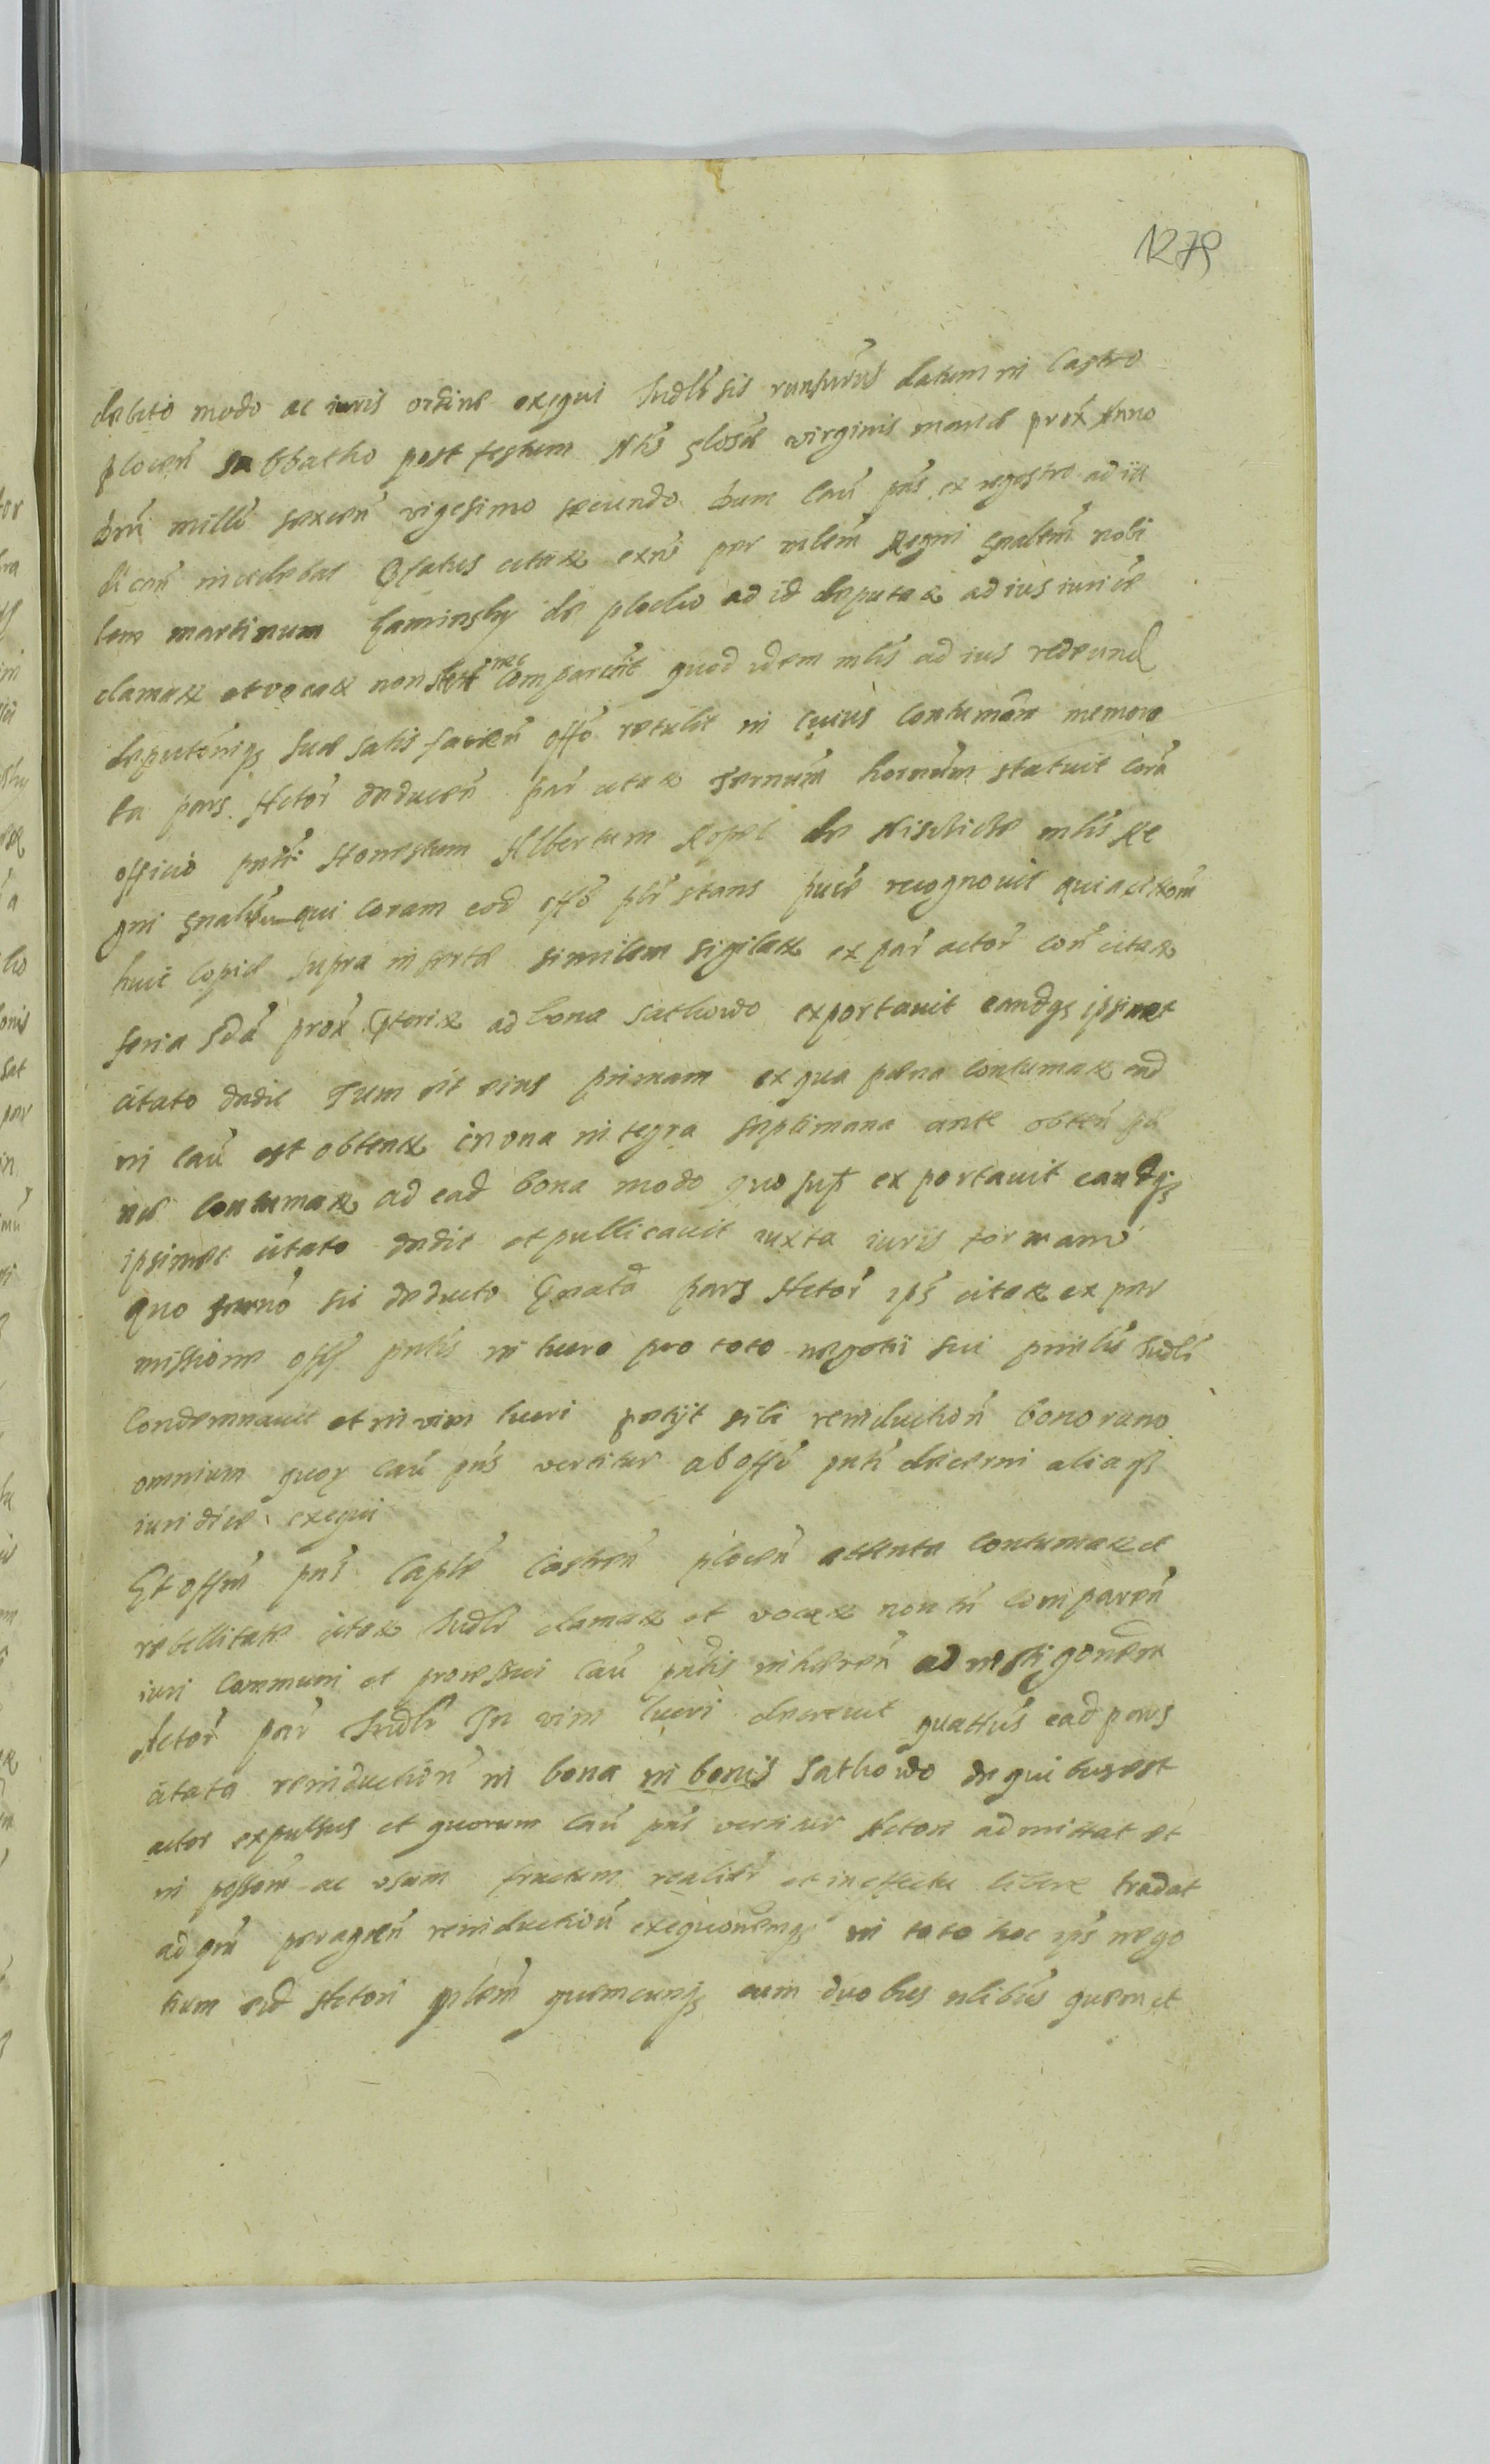 1279
debito modo ac iuris ordine exequi Judlr sis runsurus datum in Castro
plocen sabbatho post festum Ntis glosae virginis mariae prox Anno
dni mille sexcen vigesimo secundo Dum cau pns ex regestro ad iu
dicen incidebat Citatus extw per mlem Regni gnalem nobi
lem martinum de plocko ad id deputat ad ius iurice
clamat et vocat non stetit nec comparuit quod idem mlis ad ius redeund
deputoniqs suae satis facien offo retulit in cuius contumam memora
ta pars Actor deducen par citat Termum hornum statuit cora
officio pnti Honestum Albertum Kopec de mlis Re
gni gnalem qui coram eod offo plr stans puce recognovit quia citaom
huic copiae supra insertae similem sigilat ex par actor con citat
feria sda prox pterit ad bona Sathowo exportavit eandqs ipsimet
citato dedit Tum sit eius primam ex qua paena contumat ead
in cau est obtent in una integra septimana ante obten
nae contumat ad ead bona modo quo supt exportavit eandqs
ipsimet citato dedit et pullicavit iuxta iuris formam
quo termo sic deducto pars Actor ips citat ex per
missione offi pntis in lucro pro toto negotii sui pntis Judlr
condemnavit et in vim lucri petyt sibi reinduction bonorum
omnium quor cau pns vertitur ab offo pnti decerni aliaqs
iuridice exequi
Et offm pns Caple Castren plocen attenta contumat et
rebellitate citat Judlr clamat et vocat non tn comparen
iuri communi et processui cau pntis inhaeren ad instigonem
Actor par Judlr In vim lucri decrevit quattus ead pars
citata reinduction in bona in bonis Sathowo de quibus est
actor expulsus et quorum cau pns vertitur Actori admittat et
in possem ac usum fructum realitr et in effectu libere tradat
ad qm peragen reinduction exequonemqs in toto hoc ips nego
tium eid Actori mlem quemcunqs cum duobus nlibus quem et